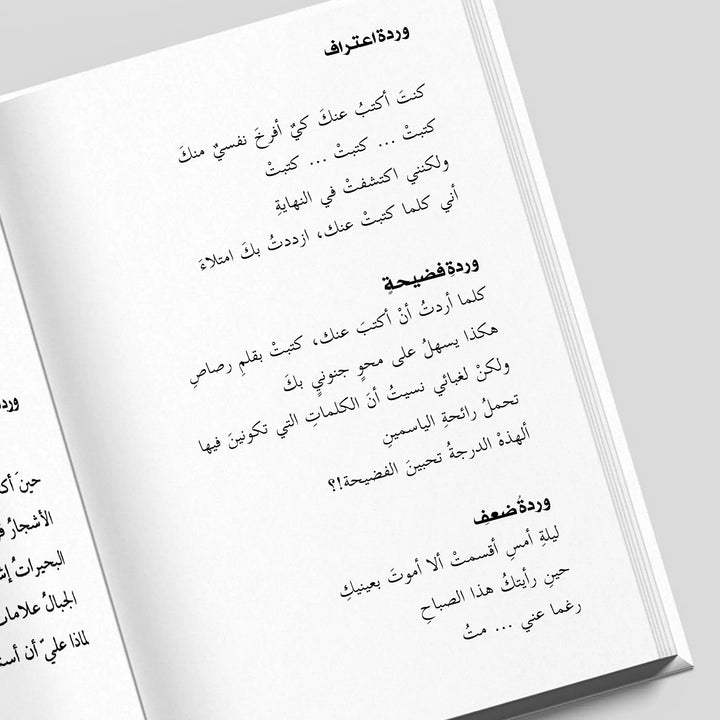 وردة اعتراف
كنتَ أكتبُ عنكَ كيْ أفرخَ نفسيْ منكَ
كتبتْ ... كتبتْ ... كتبتْ
ولكنني اكتشفتْ في النهايةِ
أني كلما كتبتْ عنك، ازددتُ بكَ امتلاءَ
وردةِ فضيحةِ
كلما أردتُ أنْ أكتبَ عنك، كتبتْ بقلمِ رصاصِ
هكذا يسهلُ على محوٍ جنونيٍ بكَ
ولكنْ لغبائي نسيتُ أنَ الكلماتِ التي تكونينَ فيها
تحملُ رائحةِ الياسمينِ
ألهذهْ الدرجةُ تحبينَ الفضيحة!؟
وردةُ ضعفِ
ليلةِ أمسِ أقسمتْ ألا أموتَ بعينيكِ
حينِ رأيتكُ هذا الصباحِ
رغما عني ... متُ
الأشجارُ
البحيراتُ
الجبالُ
لماذا عليّ أن